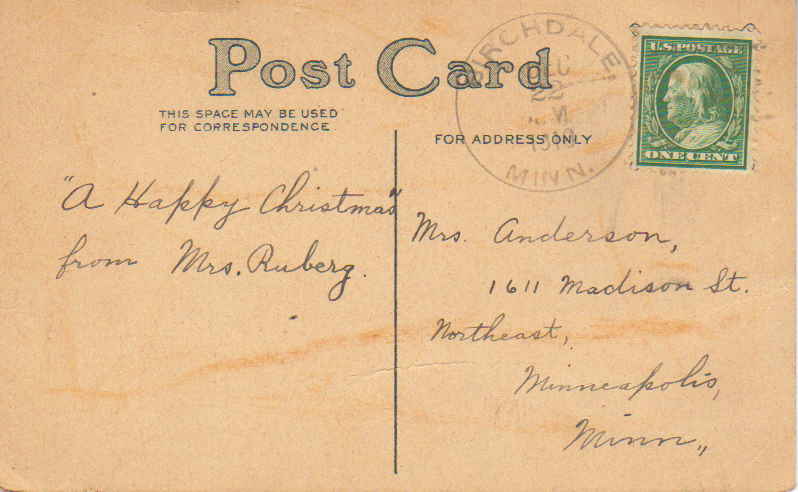 Post Card
THIS SPACE MAY BE USED
FOR CORRESPONDENCE
FOR ADDRESS ONLY
BIRCHDALE
22
MINN.
U.S. POSTAGE
ONE CENT
"A Happy Christmas"
from Mrs. Ruberg.
Mrs. Anderson,
1611 Madison St.
Northeast,
Minneapolis,
Minn.,